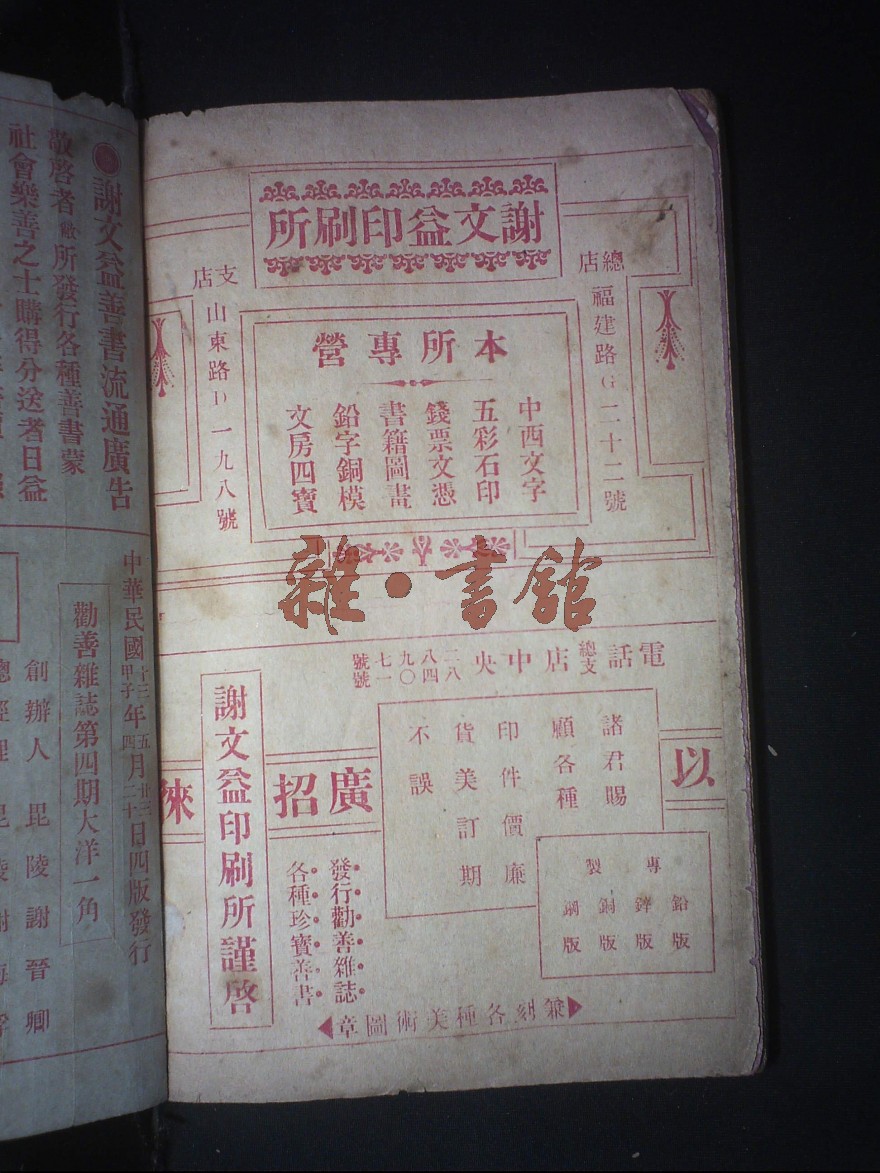 謝文益印刷所
總店
福建路G二十二號
支店
山東路D一九八號
本所專營
中西文字
五彩石印
錢票文憑
書籍圖畫
鉛字銅模
文房四寶
雜·書館
電話總支店中央
二八四〇一號
八九七號
以
廣招
徠
諸君賜
顧各種
印件價廉
貨美訂期
不誤
專製
鉛版
鋅版
銅版
鋼版
發行勸善雜誌
各種珍寶善書
兼刻各種美術圖章
謝文益印刷所謹啓
●謝文益善書流通廣告
敬啓者敝所發行各種善書蒙
社會樂善之士購得分送者日益
中華民國十三甲子年五四月廿三二十日四版發行
勸善雜誌第四期大洋一角
創辦人 毘陵謝晉卿
總經理 毘陵謝